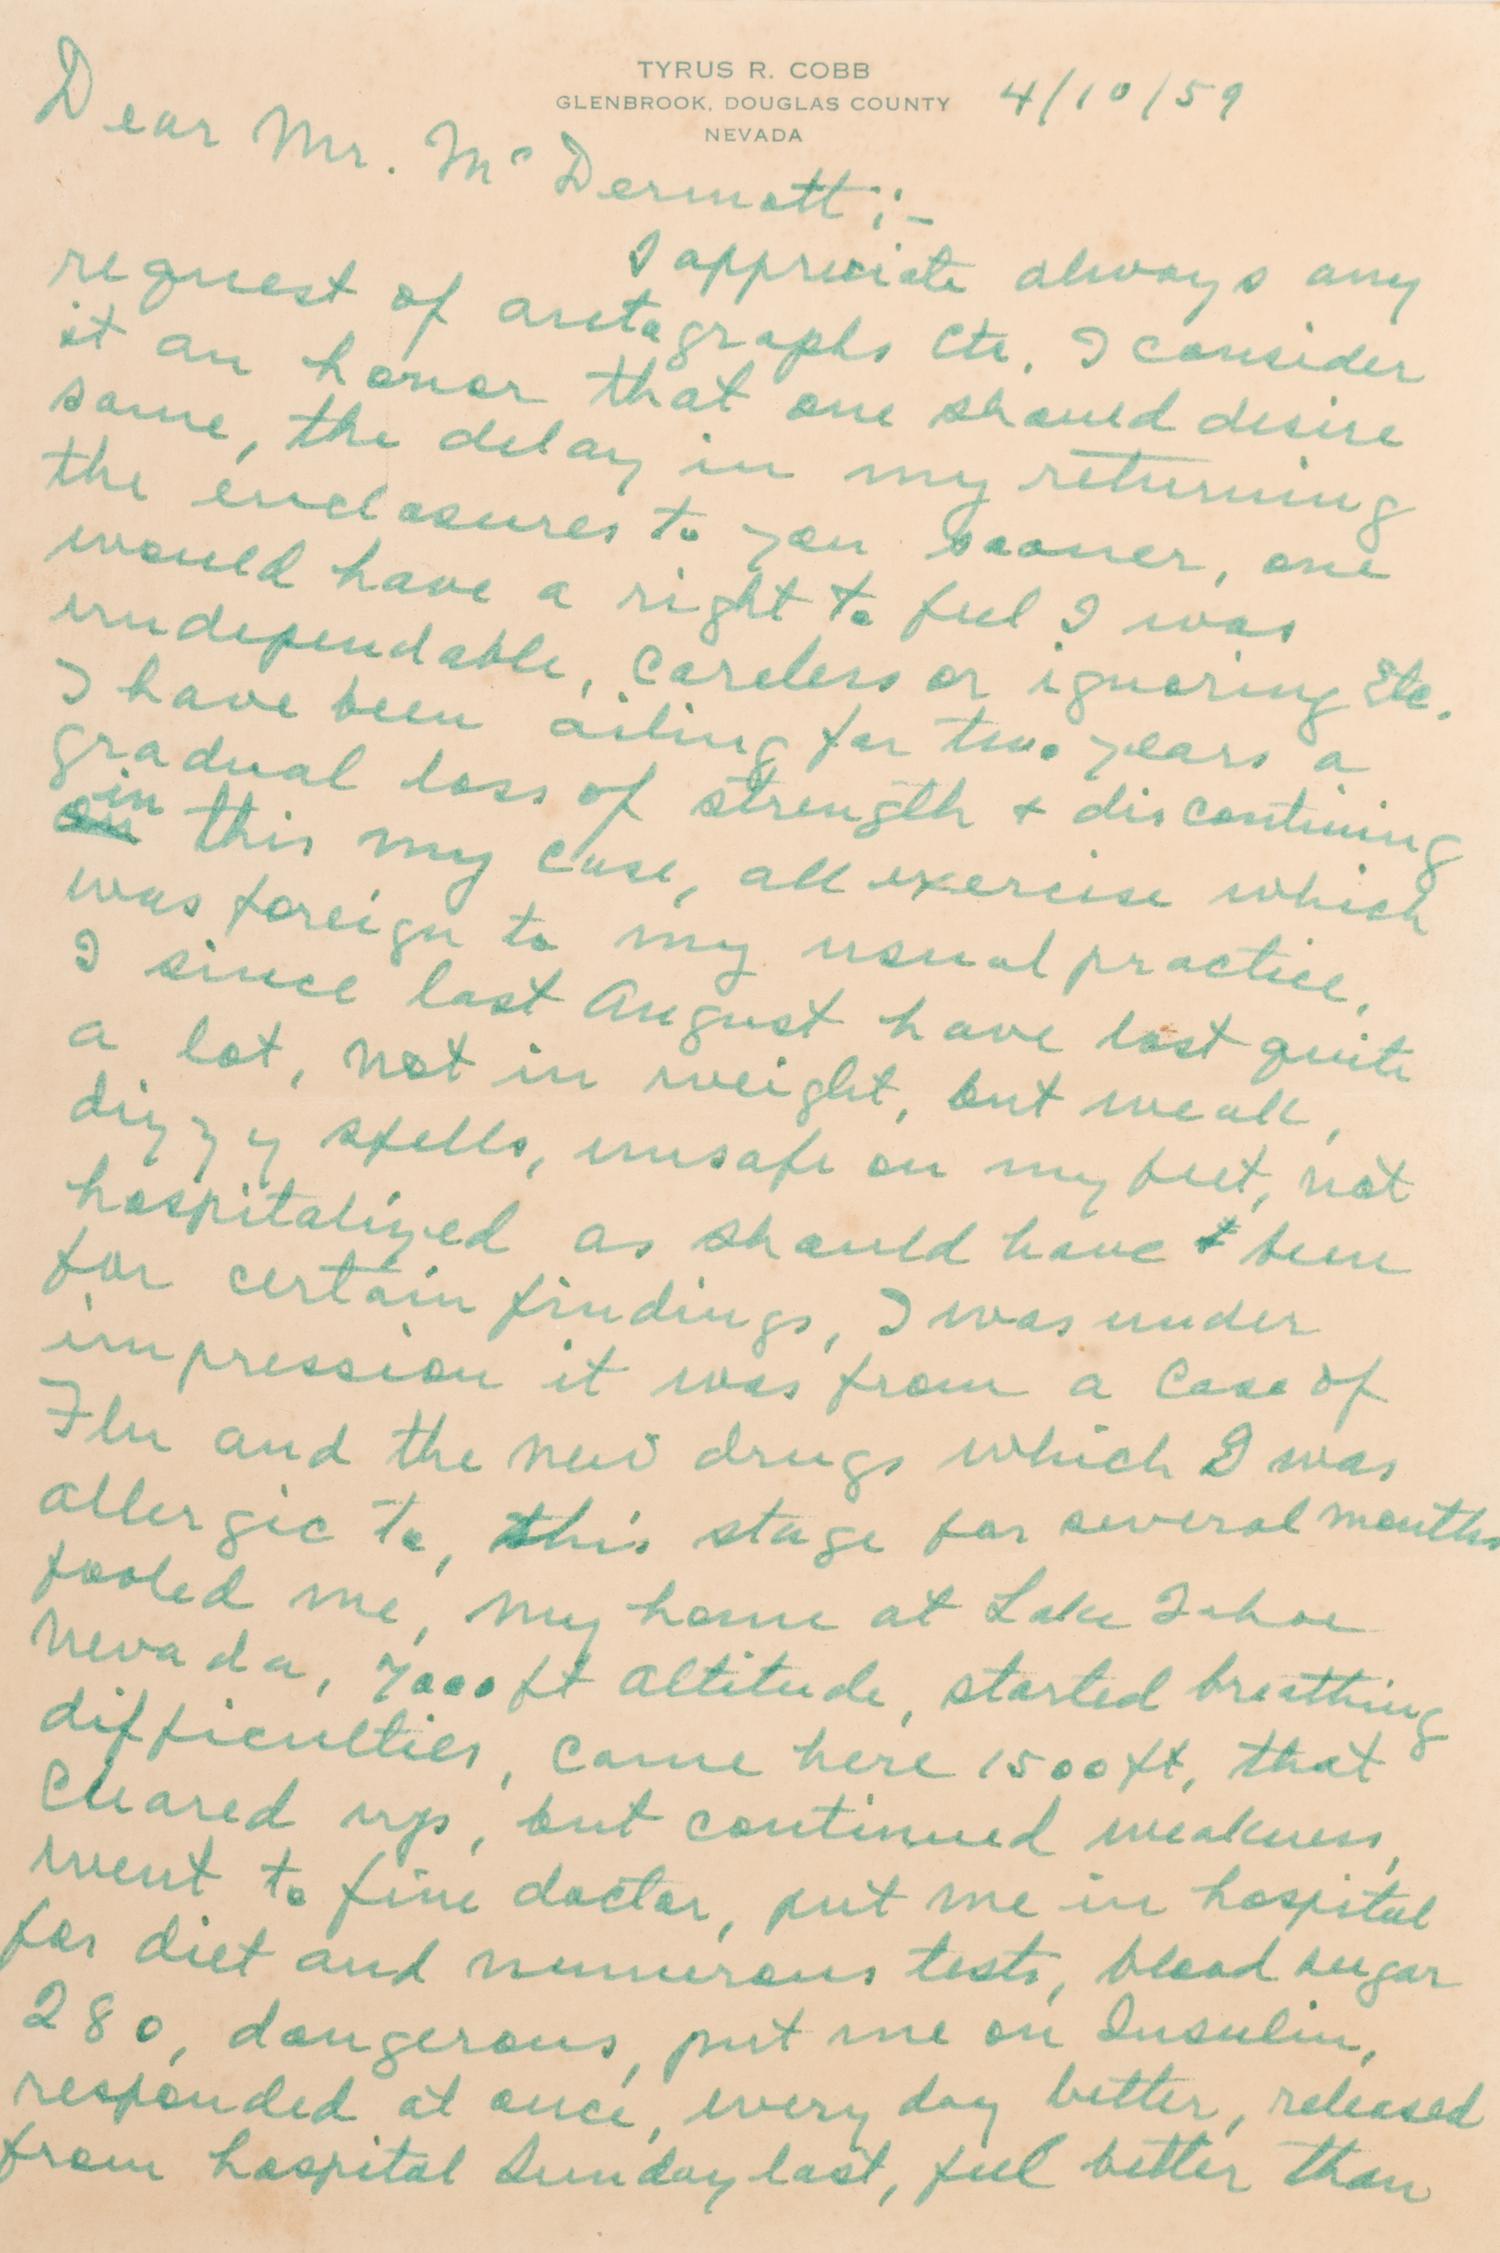 TYRUS R. COBB
GLENBROOK, DOUGLAS COUNTY
NEVADA
4/10/59
Dear Mr. McDermott:-
I appreciate always any
request of autographs etc. I consider
it an honor that one should desire
same, the delay in my returning
the enclosures to you sooner, one
would have a right to feel I was
undependable, careless or ignoring Etc.
I have been ailing for two years a
gradual loss of strength + discontinuing
in
on this my case, all exercise which
was foreign to my usual practice,
I since last August have lost quite
a lot, not in weight, but weak,
dizzy spells, unsafe on my feet, not
hospitalized as should have been
for certain findings, I was under
impression it was from a case of
Flu and the new drugs which I was
allergic to, this stage for several months
fooled me, my home at Lake Tahoe
Nevada, 7000 ft altitude, started breathing
difficulties, came here 1500 ft, that
cleared up, but continued weakness,
went to fine doctor, put me in hospital
for diet and numerous tests, blood sugar
280, dangerous, put me on Insulin,
responded at once, every day better, released
from hospital Sunday last, feel better than